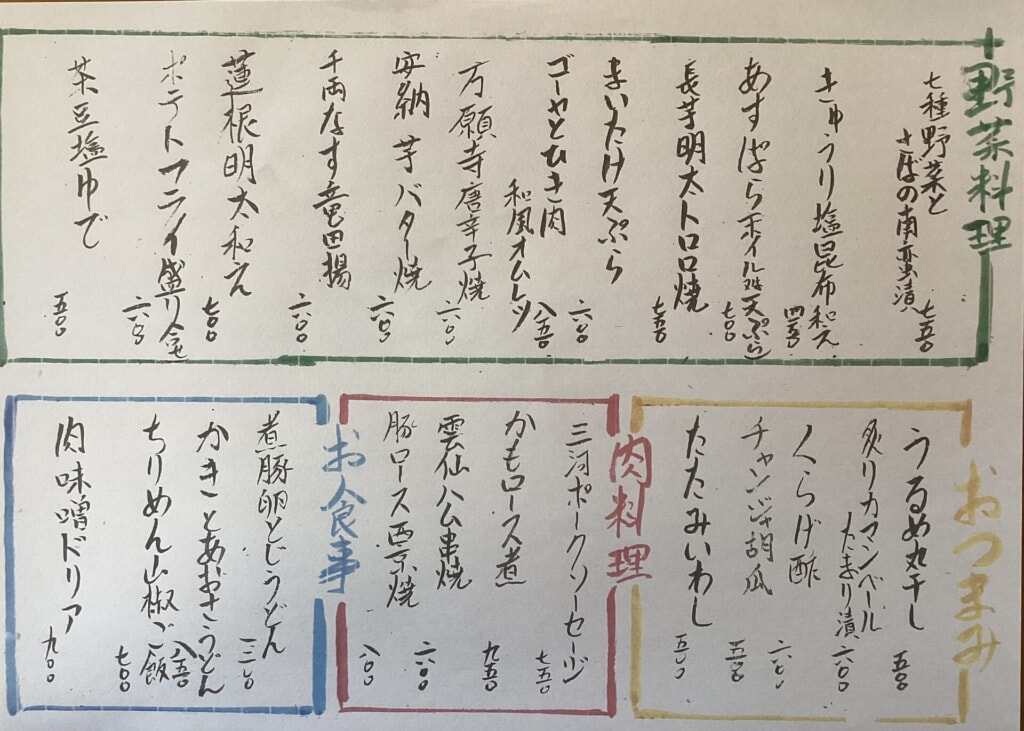 野菜料理
七種野菜と
さばの南蛮漬
七五〇
きゅうり塩昆布和え
四五〇
あすぱらボイル又は天ぷら
七〇〇
長芋明太トロロ焼
七五〇
まいたけ天ぷら
六〇〇
ゴーヤとひき肉
和風オムレツ
八五〇
万願寺唐辛子焼
六〇〇
安納芋バター焼
六〇〇
千両なす竜田揚
六〇〇
蓮根明太和え
七〇〇
ポテトフライ盛り合せ
六〇〇
茶豆塩ゆで
五〇〇
おつまみ
うるめ丸干し
五〇〇
炙りカマンベール
たまり漬
六〇〇
くらげ酢
六〇〇
チャンジャ胡瓜
五五〇
たたみいわし
五〇〇
肉料理
三河ポークソーセージ
七五〇
かもロース煮
九五〇
雲仙ハム串焼
六〇〇
豚ロース西京焼
八〇〇
お食事
煮豚卵とじうどん
かきとあおさうどん
八五〇
ちりめん山椒ご飯
七〇〇
肉味噌ドリア
九〇〇